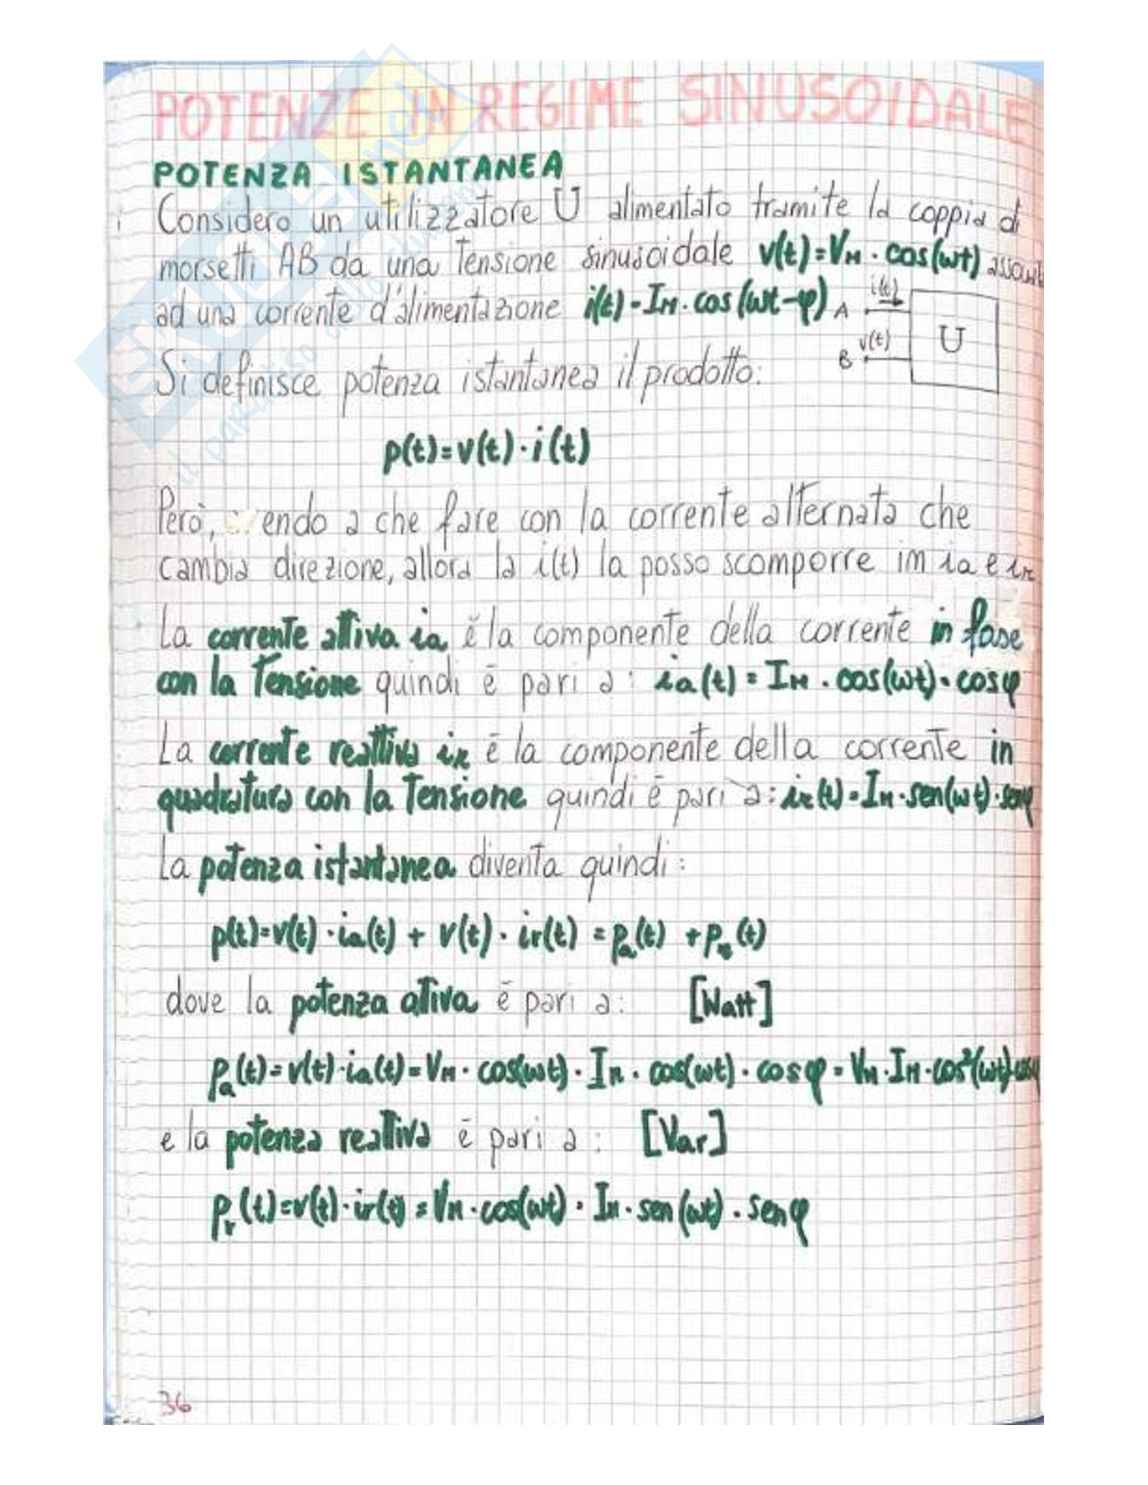 POTENZE IN REGIME SINUSOIDALE
POTENZA ISTANTANEA
Considero un utilizzatore U alimentato tramite la coppia di
morsetti AB da una tensione sinusoidale v(t)=VM·cos(ωt)
ad una corrente d'alimentazione i(t)=IM·cos(ωt-φ)
A i(t)
B v(t)
U
Si definisce potenza istantanea il prodotto:
p(t)=v(t)·i(t)
Però, endo a che fare con la corrente alternata che
cambia direzione, allora la i(t) la posso scomporre im ia e ir
La corrente attiva ia è la componente della corrente in fase
con la tensione quindi è pari a: ia(t)=IM·cos(ωt)·cosφ
La corrente reattiva ir è la componente della corrente in
quadratura con la tensione quindi è pari a: ir(t)=IM·sen(ωt)·senφ
La potenza istantanea diventa quindi:
p(t)=v(t)·ia(t) + v(t)·ir(t) = pa(t) + pr(t)
dove la potenza attiva è pari a: [Watt]
pa(t)=v(t)·ia(t)=VM·cos(ωt)·IM·cos(ωt)·cosφ=VM·IM·cos²(ωt)·cosφ
e la potenza reattiva è pari a: [Var]
pr(t)=v(t)·ir(t)=VM·cos(ωt)·IM·sen(ωt)·senφ
36